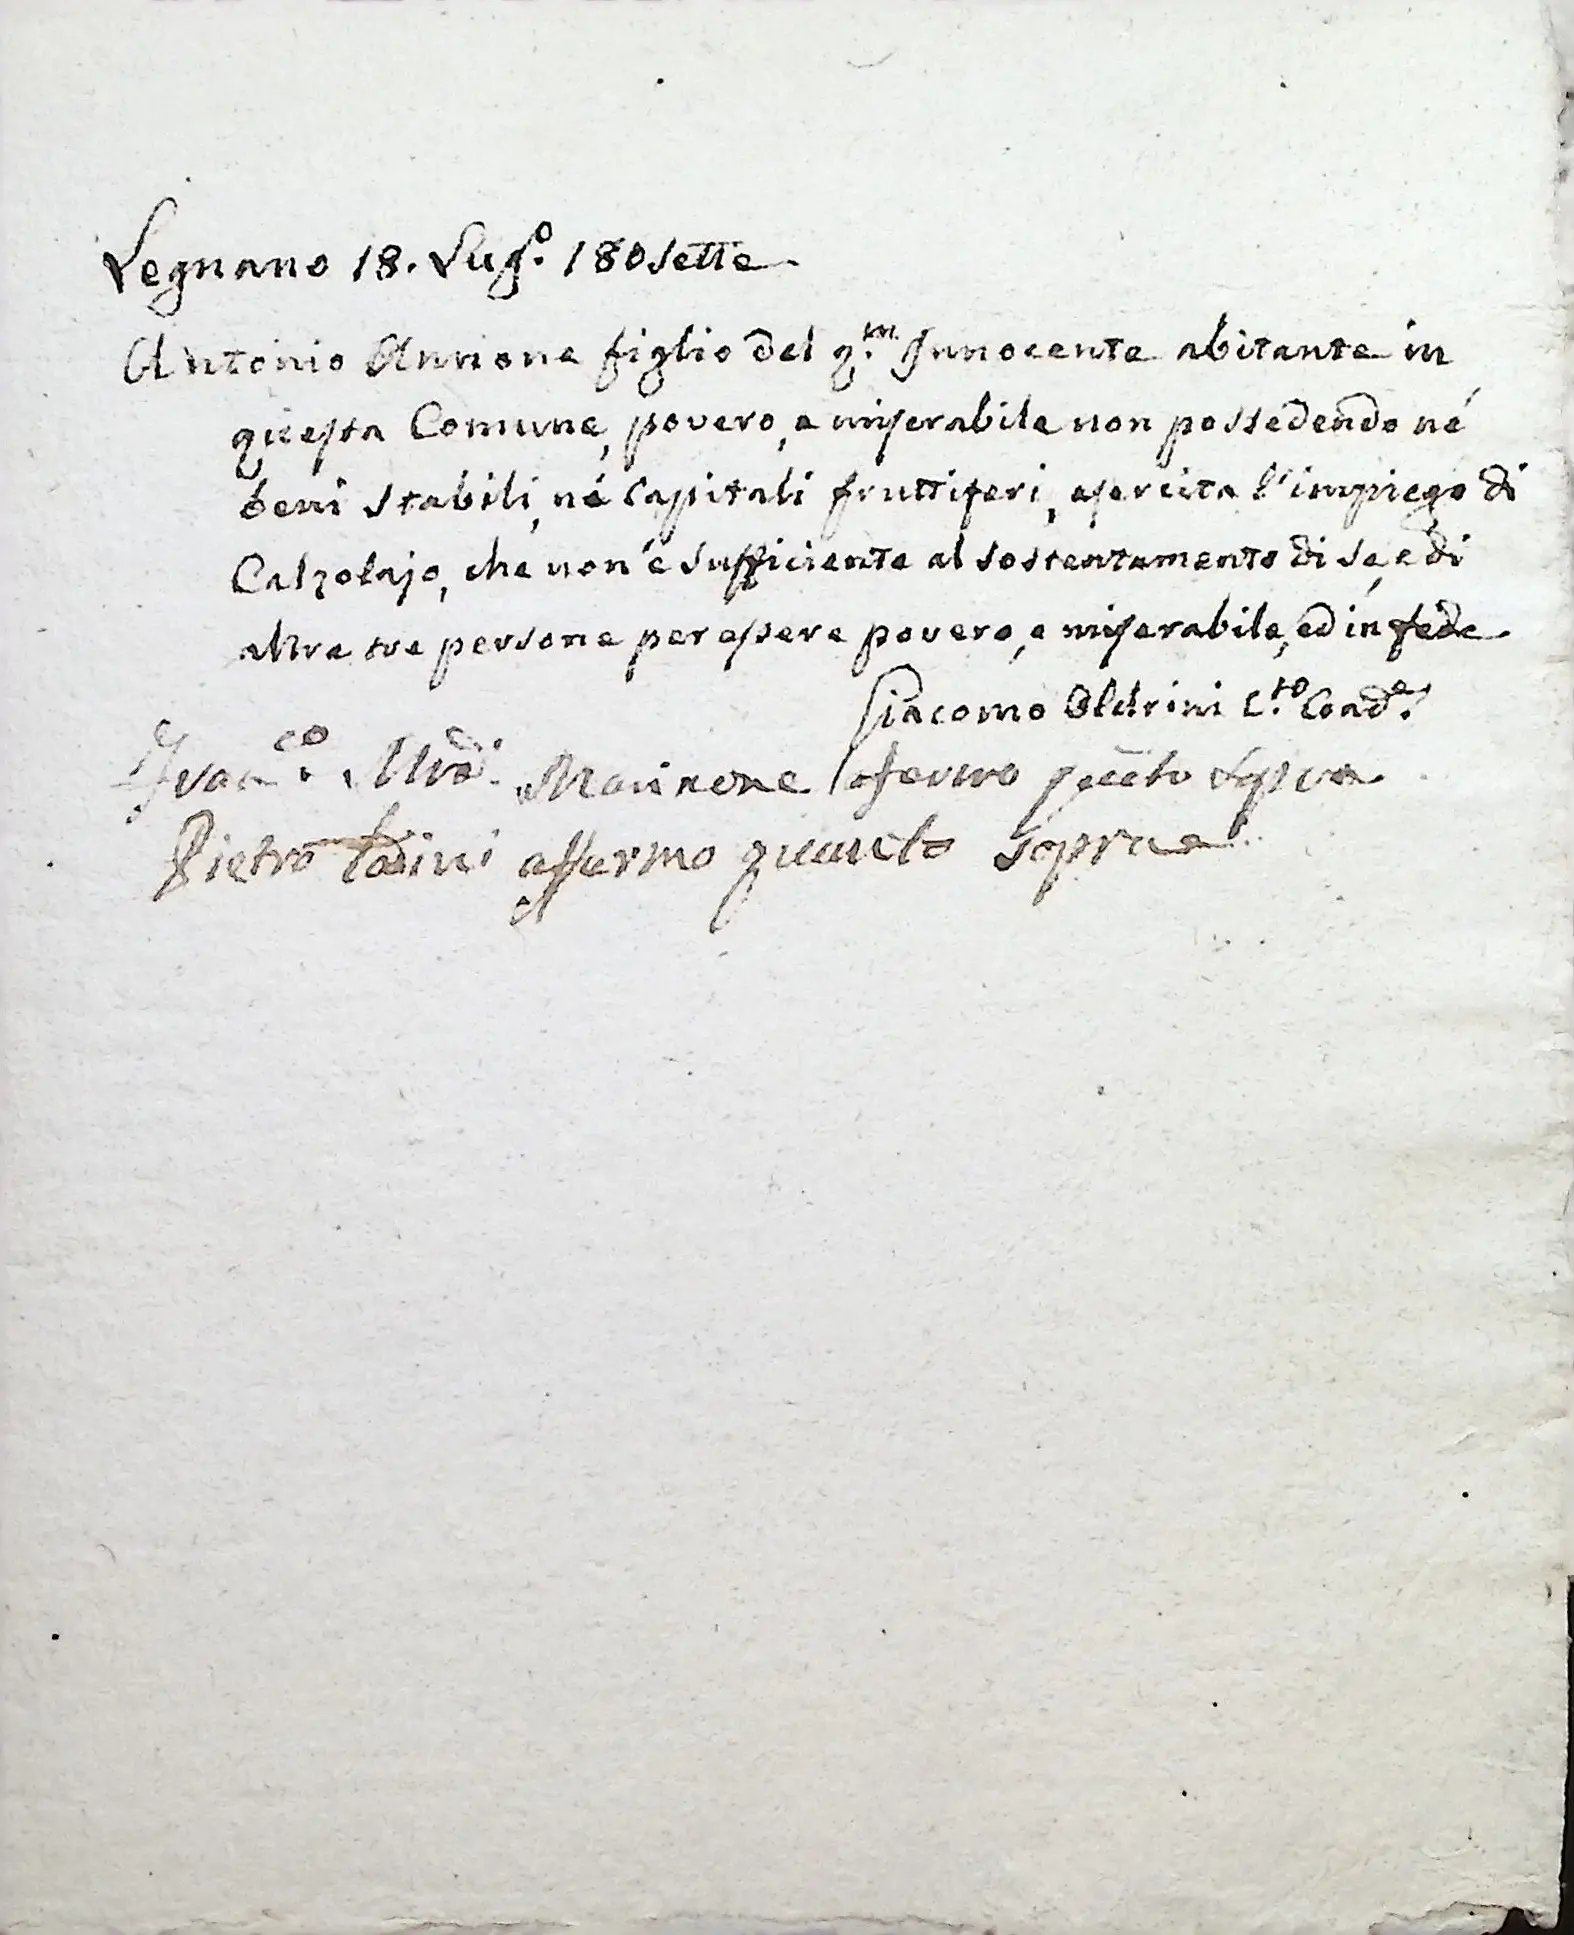 Legnano 18. Lug.o 180sette
Antonio figlio del q.m Innocente abitante in
questa Comune, povero, e miserabile non possedendo né
beni stabili, né capitali fruttiferi, esercita l'impiego di
Calzolajo, che non é sufficiente al sostentamento di se, e di
altre tre persone per essere povero, e miserabile, ed in fede
Giacomo Oldrini C.to Cond.e
Fran.co affermo quanto sopra
Pietro affermo quanto sopra